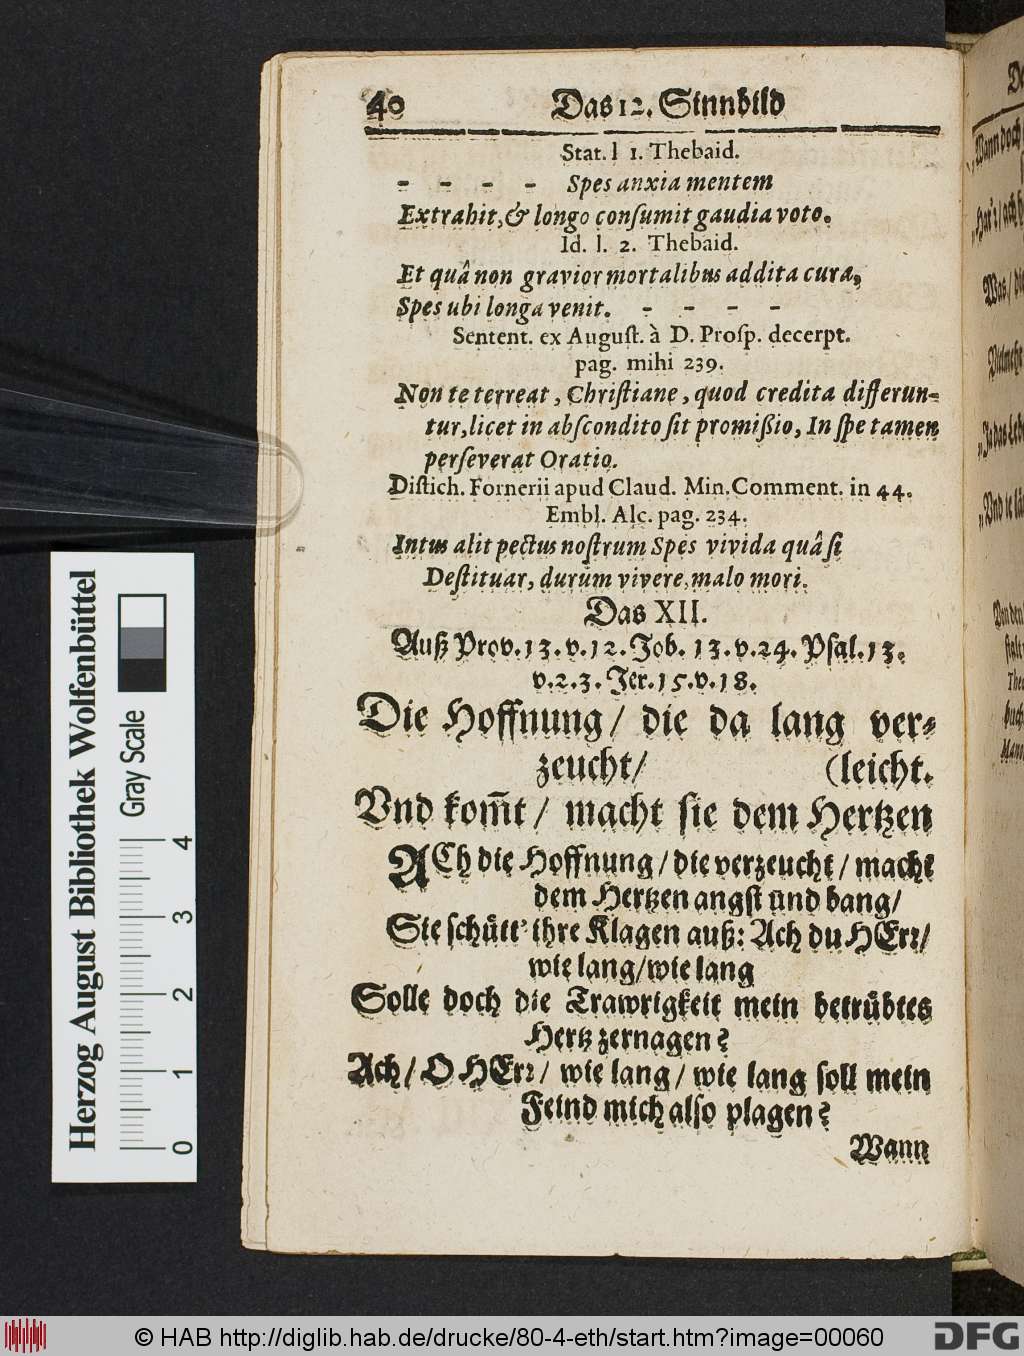 40 Das 12. Sinnbild
Stat. l 1. Thebaid.
- - - - Spes anxia mentem
Extrahit, & longo conſumit gaudia voto.
Id. l. 2. Thebaid.
Et quâ non gravior mortalibus addita cura,
Spes ubi longa venit. - - - -
Sentent. ex Auguſt. à D. Proſp. decerpt.
pag. mihi 239.
Non te terreat, Chriſtiane, quod credita differun-
tur, licet in abſcondito ſit promißio, In ſpe tamen
perſeverat Oratio.
Diſtich. Fornerii apud Claud. Min. Comment. in 44.
Embl. Alc. pag. 234.
Intus alit pectus noſtrum Spes vivida quâ ſi
Deſtituar, durum vivere, malo mori.
Das XII.
Auß Prov. 13. v. 12. Job. 13. v. 24. Pſal. 13.
v. 2. 3. Jer. 15. v. 18.
Die Hoffnung / die da lang ver-
zeucht / (leicht.
Vnd kom̃t / macht ſie dem Hertzen
ACh die Hoffnung / die verzeucht / macht
dem Hertzen angſt und bang /
Sie ſchütt' ihre Klagen auß: Ach du HErr /
wie lang / wie lang
Solle doch die Trawrigkeit mein betrübtes
Hertz zernagen?
Ach / O HErr / wie lang / wie lang ſoll mein
Feind mich alſo plagen?
Wann
Wann doch
Was / die
Vielmehr
Herzog August Bibliothek Wolfenbüttel
Gray Scale
0 1 2 3 4
© HAB http://diglib.hab.de/drucke/80-4-eth/start.htm?image=00060
DFG